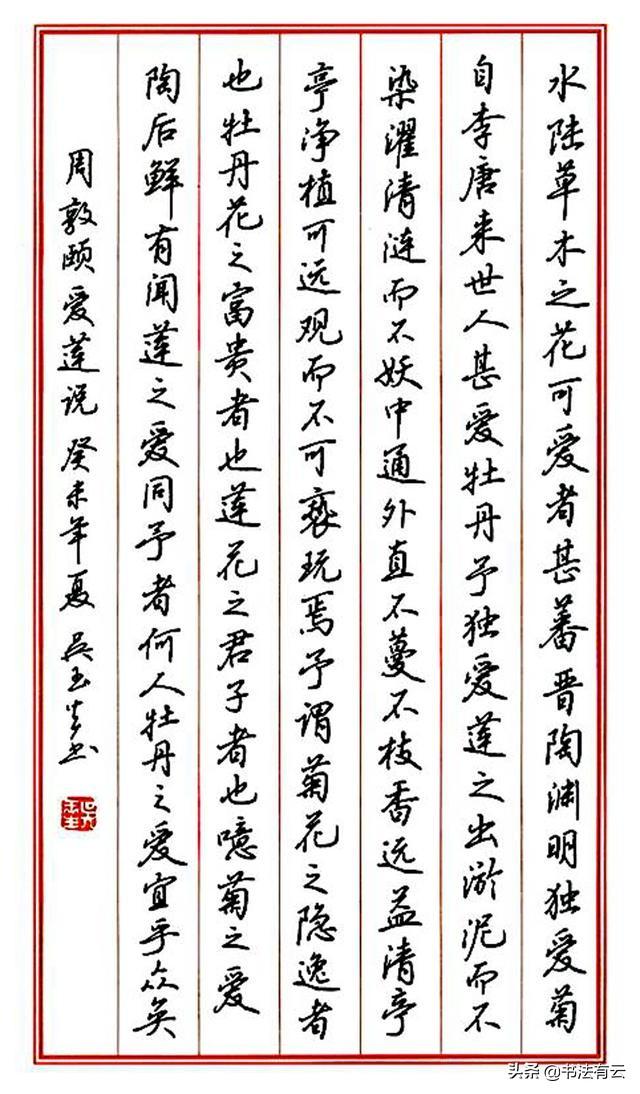 水陆草木之花可爱者甚蕃晋陶渊明独爱菊
自李唐来世人甚爱牡丹予独爱莲之出淤泥而不
染濯清涟而不妖中通外直不蔓不枝香远益清亭
亭净植可远观而不可亵玩焉予谓菊花之隐逸者
也牡丹花之富贵者也莲花之君子者也噫菊之爱
陶后鲜有闻莲之爱同予者何人牡丹之爱宜乎众矣
周敦颐爱莲说癸未年夏吴玉生书
头条 @书法有云